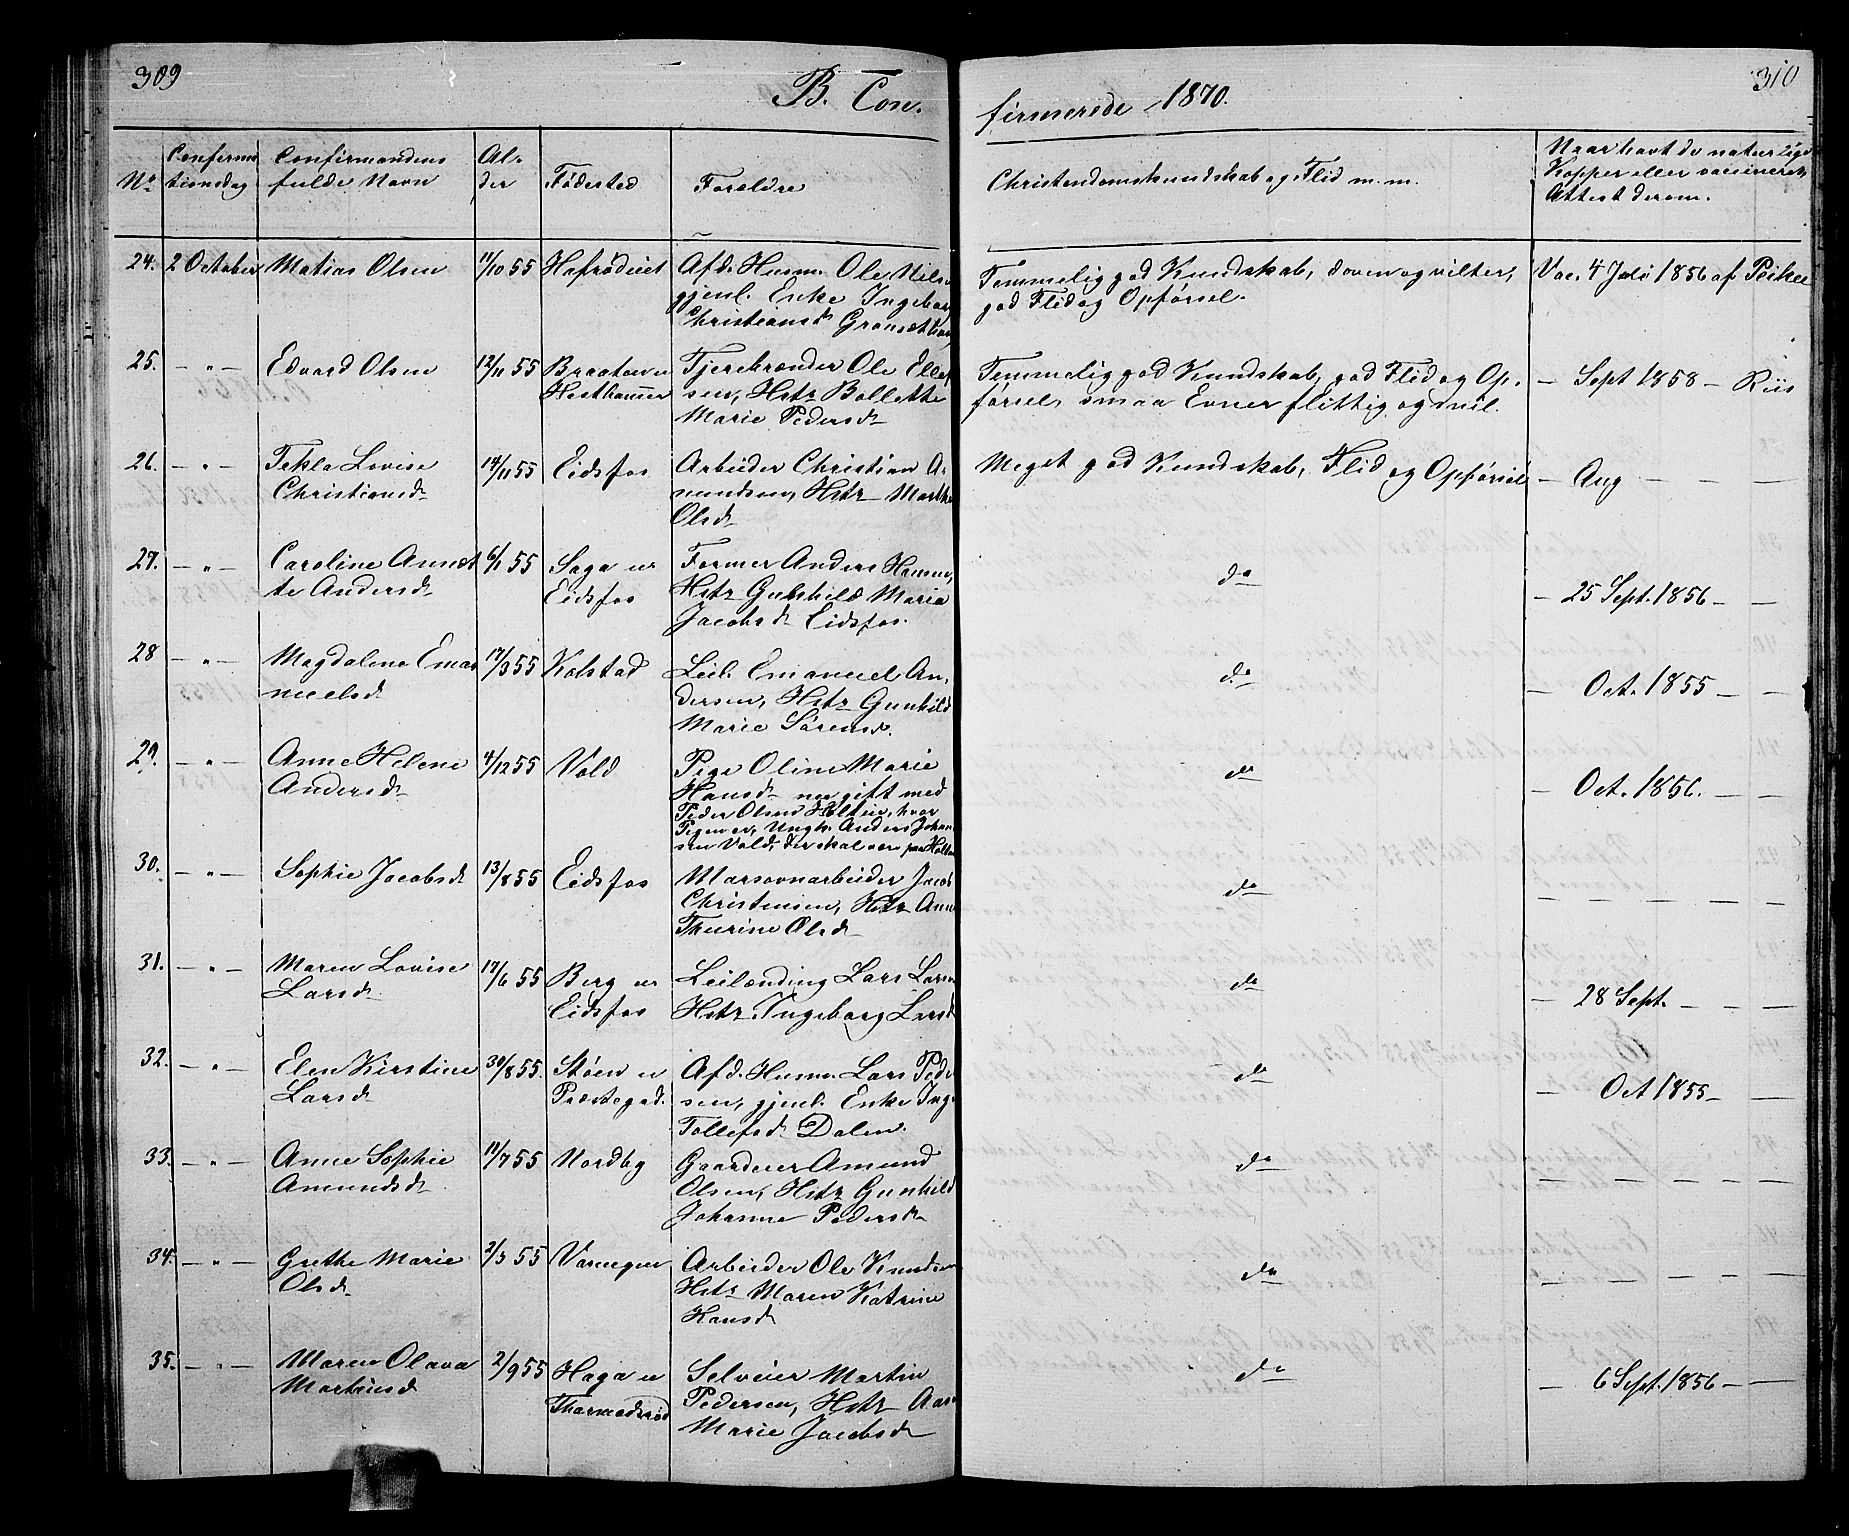 309
B. Con-
firmerede 1870.
310
No
Confirma
tionsdag
Confirmandens
fulde Navn
Al-
der
Födested
Forældre
Christendomskundskab og Flid m. m.
Naar havt de naturlige
Kopper eller vaccineret,
Attest derom.
24. 2 October Matias Olsen 11/10 55 Hafrödeiet Afd. Husm. Ole Nils
gjenl. Enke Ingeborg
Christiansd.
Temmelig god Kundskab, doven og vilter,
god Flid og Opförsel.
Vac. 4 Juli 1856 af
25. — " — Edvard Olsen 12/11 55 Braaten u
Hesthammer
Tjærebrænder Ole Ellef
sen, Hstr Bollette
Marie Pedersd
Temmelig god Kundskab, god Flid og Op-
försel, smaa Evner flittig og snil.
— Sept 1858 — Riis
26. — " — Tekla Lovise
Christiansd
14/11 55 Eidsfos Arbeider Christian A-
mundsen, Hstr Marthe
Olsd
Meget god Kundskab, Flid og Opförsel — Aug — — —
27. — " — Caroline Annet
te Andersd
6/1 55 Saga u
Eidsfos
Former Anders Hansen,
Hstr Gunhild Maria
Jacobsd Eidsfos.
do
— 25 Sept. 1856 — —
28 — " — Magdalena Ema
nuelsd
17/3 55 Kolstad Leil. Emanuel An-
dersen, Hstr Gunhild
Marie Sörensd.
do
— Oct. 1855 — —
29. — " — Anne Helene
Andersd
4/12 55 Vold Pige Oline Marie
Hansd nu gift med
Peder Olsen Holtun, hvor
Pigen er, Ungk. Anders Johan
sen Vold, der skal være paa Holt
do
— Oct. 1856. — —
30. — " — Sophie Jacobsd 13/8 55 Eidsfos Masovnarbeider Jacob
Christensen, Hstr Anne
Thurine Olsd
do
— — — — — —
31. — " — Maren Lovise
Larsd
17/6 55 Berg u
Eidsfos
Leilænding Lars Larsen
Hstr Ingeborg Larsd
do
— 28 Sept. — — —
32. — " — Elen Kirstine
Larsd
30/8 55. Stöen u
Præstegd.
Afd. Husm. Lars Peder
sen, gjenl. Enke Inge
Tollefsd Dalen.
do
— Oct 1855 — —
33. — " — Anne Sophie
Amundsd
11/7 55 Nordby Gaardeier Amund
Olsen, Hstr Gunhild
Johanne Pedersd
do
— — — — — —
34. — " — Grethe Marie
Olsd
2/3 55 Arbeider Ole Knudsen
Hstr Maren Katrine
Hansd
do
— — — — — —
35. — " — Maren Olava
Martinsd
2/9 55 Haga u
Thormodsröd
Selveier Martin
Pedersen, Hstr
Marie Jacobsd
do
— 6 Sept. 1856 — —